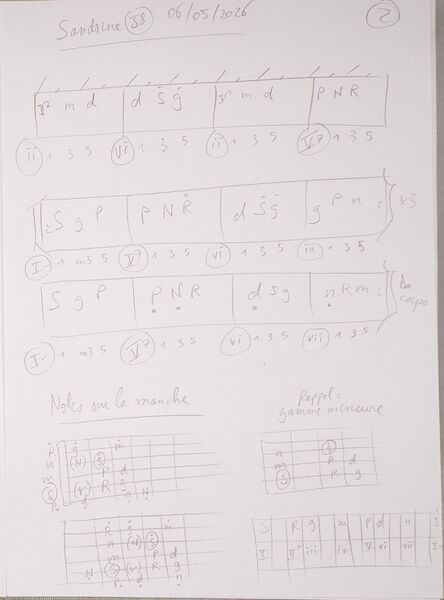 Sandrine 58 06/05/2026 2
r m d d S g r m d P N R
ii 1 3 5 vi 1 3 5 ii 1 3 5 V7 1 3 5
S g P P N R d S g g P n x3
I- 1 m3 5 V7 1 3 5 vi 1 3 5 iii 1 3 5
S g P P N R d S g n R m Da capo
I- 1 m3 5 V7 1 3 5 vi 1 3 5 vii 1 3 5
Notes sur le manche
Rappel =
gamme mineure
R g m
n (N) S
m P d
S (r) R g
P d n N
n S
m P d
S R g
R g m
n (N) S
m P d
N S (r) R g
P d n
S R g m P d n S
I II° iii iv V vi vii I